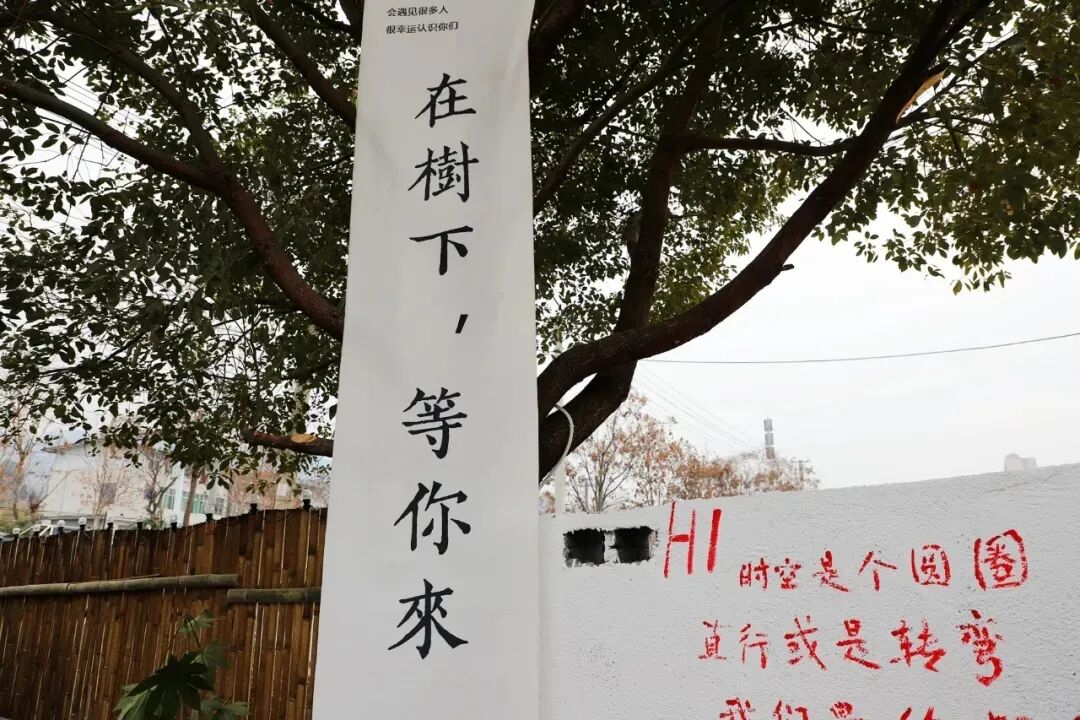 会遇见很多人
很幸运认识你们
在樹下，等你來
HI
时空是个圆圈
直行或是转弯
我们最